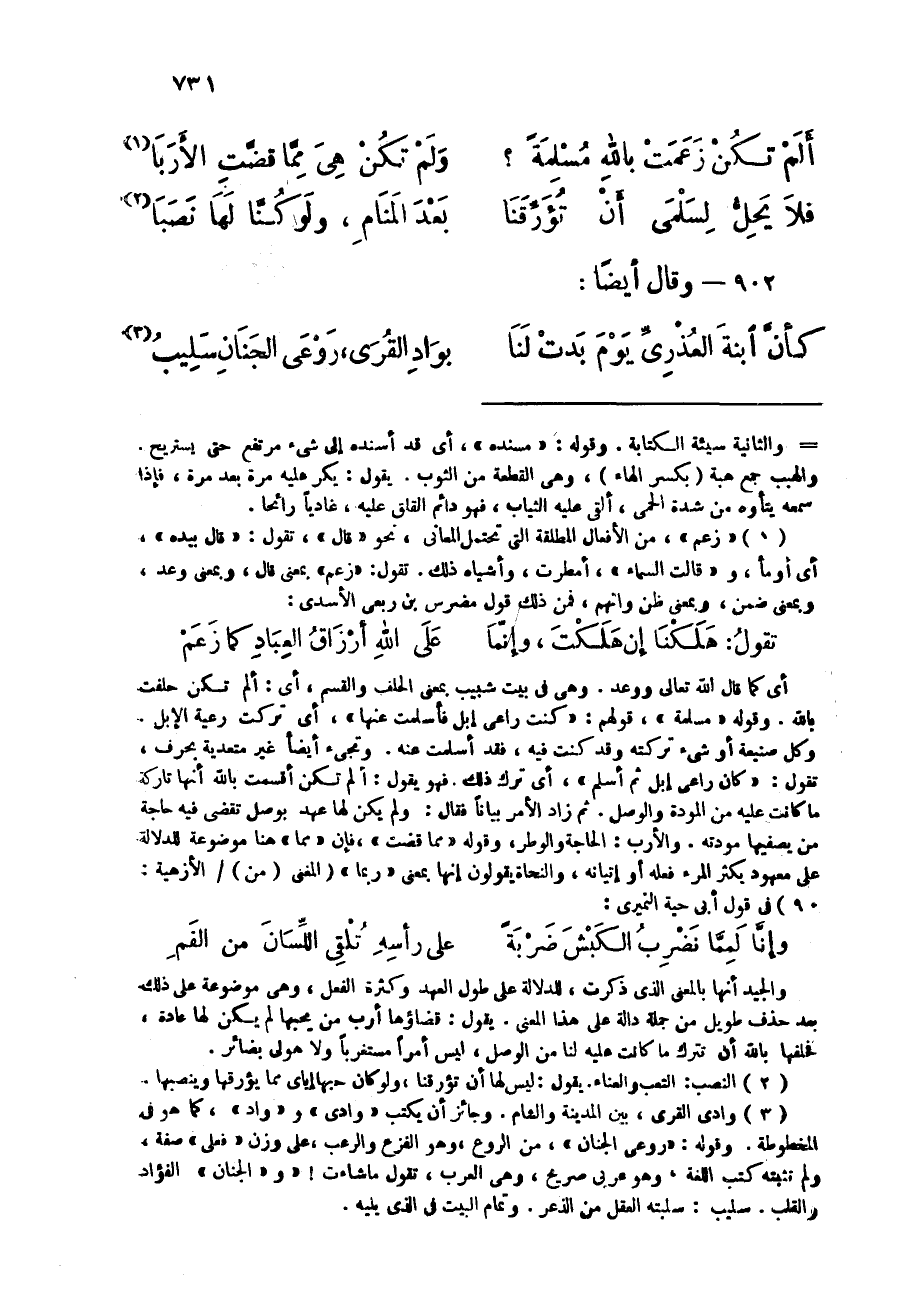 ٧٣١
أَلَمْ تَكُنْ زَعَمَتْ بِاللهِ مُسْلِمَةً ؟ وَلَمْ تَكُنْ هِىَ مِمَّا قضَّتِ الأَرَبَا(١)
فلاَ يَحِلُّ لِسَلْمَى أَنْ تُؤَرِّقَنَا بَعْدَ المَنَامِ ، ولَوَ كُنَّا لَهَا نَصَبَا(٢)
٩٠٢ — وقال أيضًا :
كأنَّ ٱبنةَ العُذْرِىِّ يَوْمَ بَدَتْ لَنَا بوَادِ القُرَى، رَوْعَى الجَنَانِ سَلِيبُ(٣)
= والثانية سيئة الكتابة . وقوله : « مسنده » ، أى قد أسنده إلى شىء مرتفع حتى يستريح .
والهبب جمع هبة ( بكسر الهاء ) ، وهى القطعة من الثوب . يقول : يكر عليه مرة بعد مرة ، فإذا
سمعه يتأوه من شدة الحمى ، ألقى عليه الثياب ، فهو دائم القلق عليه ، غادياً رائحا .
( ١ ) « زعم » ، من الأفعال المطلقة التى تحتمل المعانى ، نحو « قال » ، تقول : « قال بيده » ،
أى أومأ ، و « قالت السماء » ، أمطرت ، وأشباه ذلك . تقول: «زعم» بمعنى قال ، وبمعنى وعد ،
وبمعنى ضمن ، وبمعنى ظن واتهم ، فمن ذلك قول مضرس بن ربعى الأسدى :
تقولُ: هَلَكْنَا إن هَلَكْتَ ، وإنَّمَا عَلَى اللهِ أرْزَاقُ العِبَادِ كما زَعَمْ
أى كما قال الله تعالى ووعد . وهى فى بيت شبيب بمعنى الحلف والقسم ، أى : ألم تكن حلفت
بالله . وقوله « مسلمة » ، قولهم : « كنت راعى إبل فأسلمت عنها » ، أى تركت رعية الإبل .
وكل صنيعة أو شىء تركته وقد كنت فيه ، فقد أسلمت عنه . وتجىء أيضاً غير متعدية بحرف ،
تقول : « كان راعى إبل ثم أسلم » ، أى ترك ذلك . فهو يقول : ألم تكن أقسمت بالله أنها تاركة
ما كانت عليه من المودة والوصل . ثم زاد الأمر بياناً فقال : ولم يكن لها عهد بوصل تقضى فيه حاجة
من يصفيها مودته . والأرب : الحاجة والوطر، وقوله « مما قضت » ، فإن « مما » هنا موضوعة للدلالة
على معهود يكثر المرء فعله أو إتيانه ، والنحاة يقولون إنها بمعنى « ربما » ( المغنى ( من ) / الأزهية :
٩٠ ) فى قول أبى حية النميرى :
وإنَّا لَمِمَّا نَضْرِبُ الكَبْشَ ضَرْبَةً على رأسِهِ تُلْقِى اللِّسَانَ من الفَمِ
والجيد أنها بالمعنى الذى ذكرت ، للدلالة على طول العهد وكثرة الفعل ، وهى موضوعة على ذلك
بعد حذف طويل من جملة دالة على هذا المعنى . يقول : قضاؤها أرب من يحبها لم يكن لها عادة ،
فحلفها بالله أن تترك ما كانت عليه لنا من الوصل ، ليس أمراً مستغرباً ولا هو لى بضائر .
( ٢ ) النصب: التعب والعناء. يقول : ليس لها أن تؤرقنا ، ولو كان حبها إياى مما يؤرقها وينصبها .
( ٣ ) وادى القرى ، بين المدينة والشام . وجائز أن يكتب « وادى » و « واد » ، كما هو فى
المخطوطة . وقوله : « روعى الجنان » ، من الروع ، وهو الفزع والرعب ، على وزن « فعلى » صفة ،
ولم تثبته كتب اللغة ، وهو عربى صريح ، وهى العرب ، تقول ما شاءت ! « و « الجنان » الفؤاد
والقلب . سليب : سلبته العقل من الذعر . وتمام البيت فى الذى يليه .